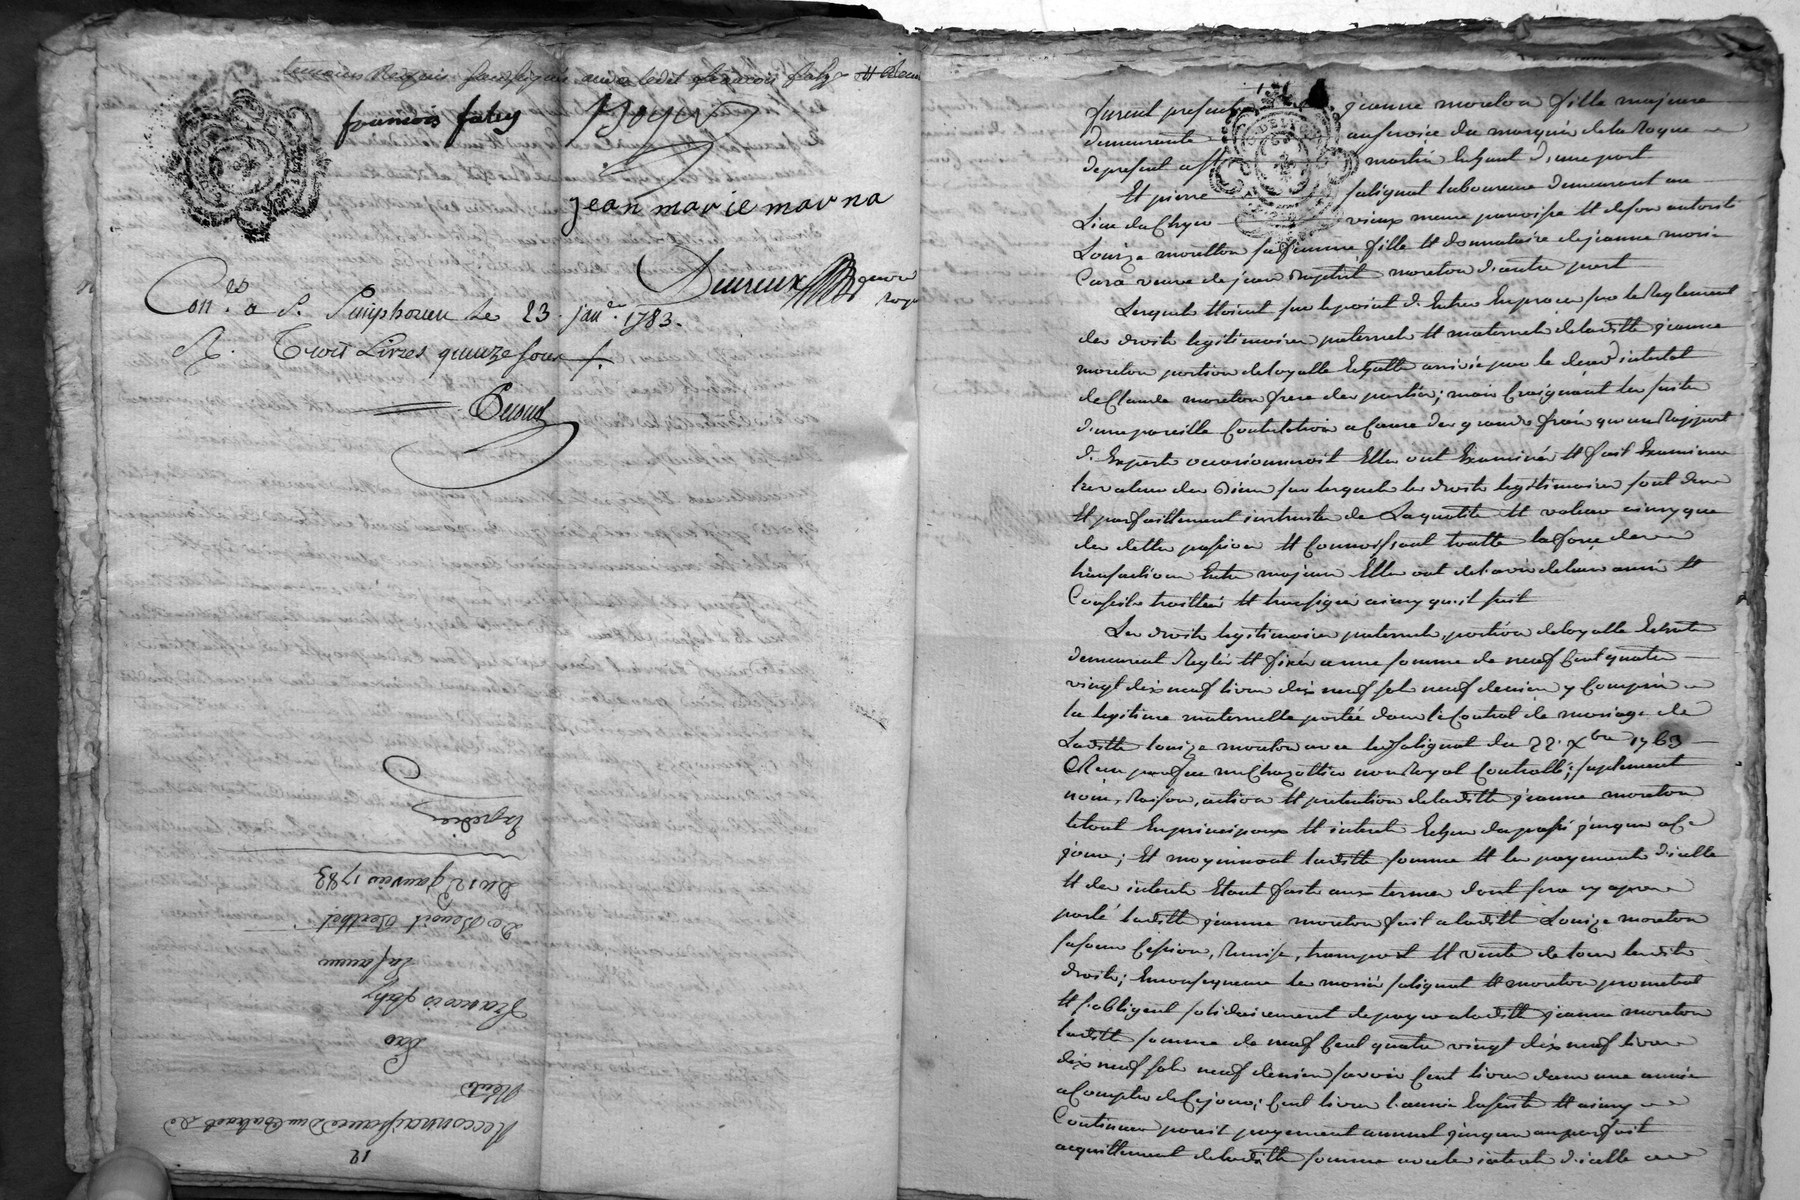 temoins Requis soussignés avec ledit francois faty et
francois faty
Boyer
jean marie marna
Dureux
Con. les a S. Simphorien Le 23 jan. 1783.
R. Trois Livres quinze sous
12
Reconnaissance d'un Contrat de
Rente
Par
Francois faty
Lafaurie
De Benoit Berthet
Du 12 Janvier 1783
Expediée
furent presents jeanne moreton fille majeure
demeurante au service du marquis de la Roque
de present a St martin Lestant d'une part
Et pierre salignat laboureur demeurant au
Lieu du vieux meme paroisse et de son autorité
Louize moretton sa femme fille et donnataire de jeanne
veuve de jean Baptiste moreton d'autre part
Lesquels étoient sur le point d'Entrer En procès sur le Reglement
des droits legitimaires paternels et maternels de laditte jeanne
moreton portion de loyalle Echutte arrivée par le deces intestat
de Claude moreton frere des parties; mais Craignant les suites
d'une pareille Contestation a Cause des grands frais qu'un Rapport
d'Experts occasionneroit Elles ont Examiné et fait Examiner
les valeurs des Biens sur lesquels les droits legitimaires sont dus
Et parfaittement instruites de La quotité et valeur ainsy que
des dettes passives et Connoissant toutte la force des
transactions Entre majeurs Elles ont de l'avis de leurs amis et
Conseils traittés et transigés ainsy qu'il suit
Les droits legitimaires paternels, portion de loyalle Echute
demeurent Reglés et fixés a une somme de neuf Cent quatre
vingt dix neuf livres dix neuf sols neuf deniers y Compris
la legitime maternelle portée dans le Contrat de mariage de
Laditte louize moreton avec led salignat du 22. Xbre 1763
Reçu par Chazottier notaire Royal Controllé; suplement
noms, Raison, action et pretention de laditte jeanne moreton
le tout En principaux et interets Echus du passé jusqu'a Ce
jour; Et moyennant laditte somme et les payements d'icelle
et des interets Etant faits aux termes dont sera cy apres
parlé laditte jeanne moreton fait a laditte Louize moreton
sa soeur Cession, Remise, transport et vente de tous lesdits
droits; En consequence les mariés salignat et moreton promettent
et s'obligent solidairement de payer a laditte jeanne moreton
laditte somme de neuf Cent quatre vingt dix neuf livres
dix neuf sols neuf deniers savoir Cent livres dans une année
a Compter de Ce jour; Cent livres l'année Ensuite et ainsy
Continuer pareil payement annuel jusqu'au parfait
acquittement de laditte somme avec les interets d'icelle